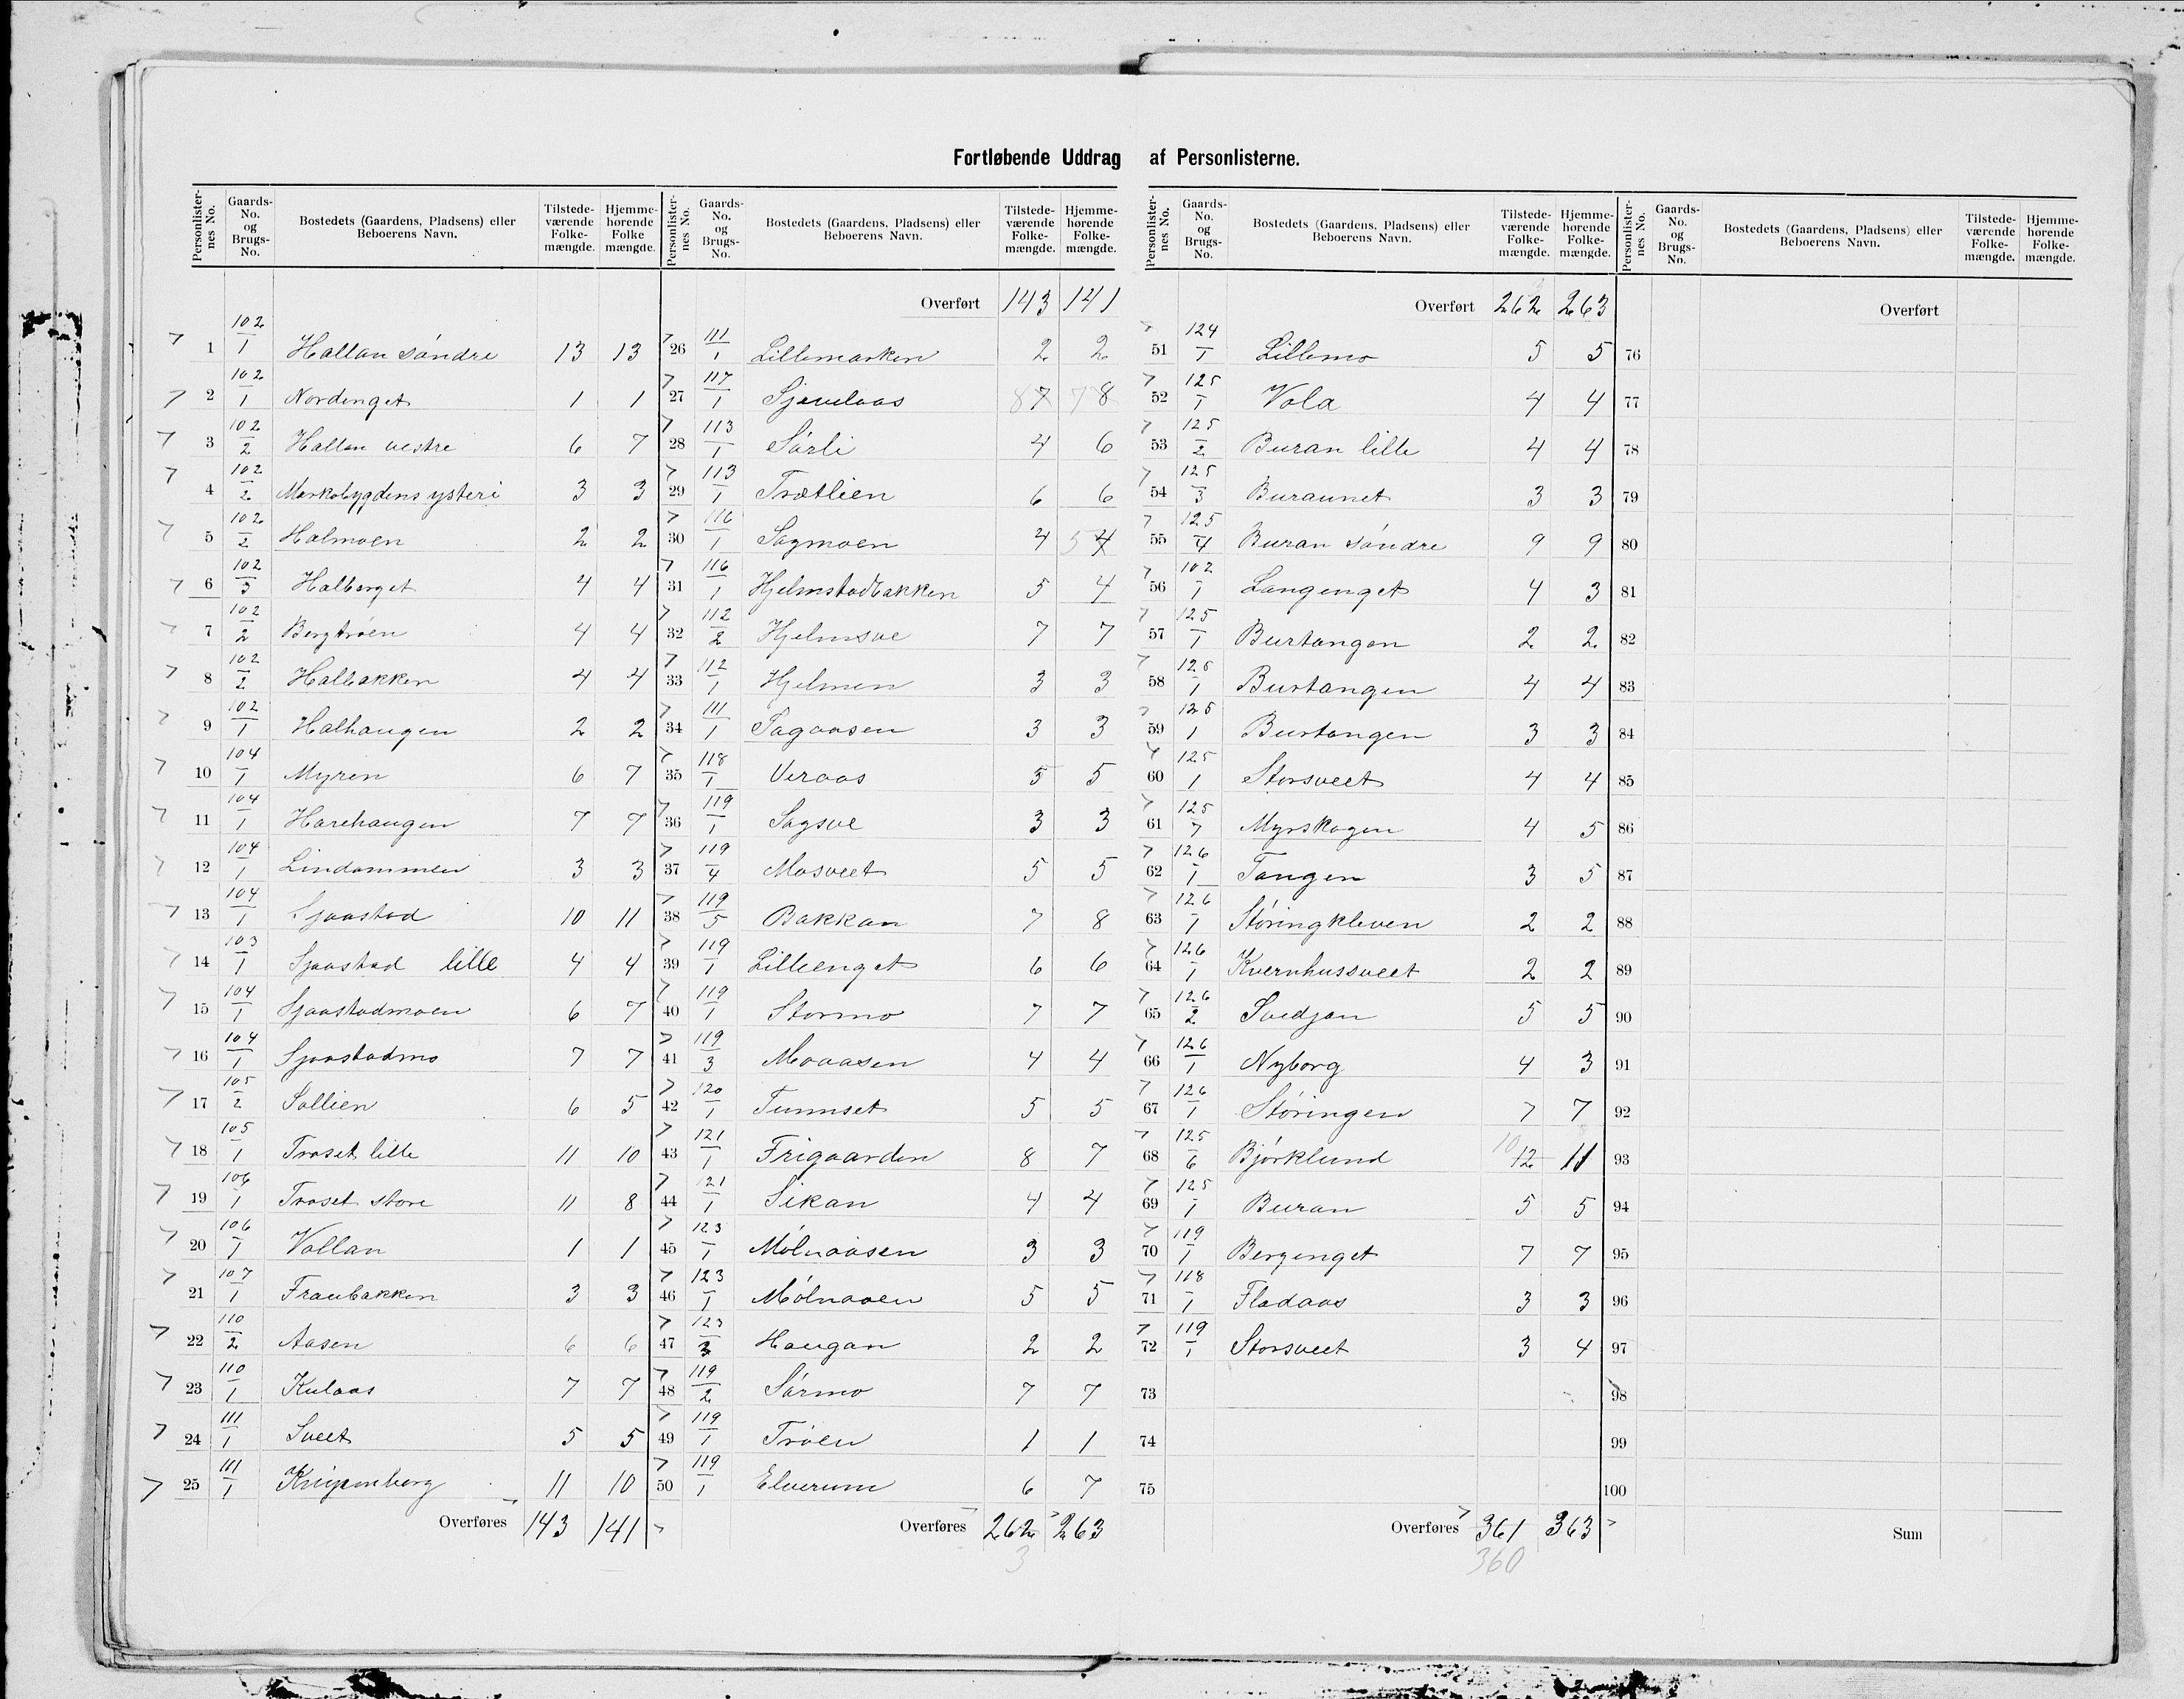 Fortløbende Uddrag af Personlisterne.
Personlister-nes No. Gaards-No. og Brugs-No. Bostedets (Gaardens, Pladsens) eller Beboerens Navn. Tilstede-værende Folke-mængde. Hjemme-hørende Folke mængde.
1 102/1 Hallan søndre 13 13
2 102/1 Nordenget 1 1
3 102/2 Hallan vestre 6 7
4 102/2 Markabygdens ysteri 3 3
5 102/2 Halmoen 2 2
6 102/3 Halberget 4 4
7 102/2 Bergtrøen 4 4
8 102/2 Halbakken 4 4
9 102/1 Halhaugen 2 2
10 104/1 Myren 6 7
11 104/1 Harehaugen 7 7
12 104/1 Lindammen 3 3
13 104/1 Sjaastad 10 11
14 103/1 Sjaastad lille 4 4
15 104/1 Sjaastadmoen 6 7
16 104/1 Sjaastadmo 7 7
17 105/2 Sollien 6 5
18 105/1 Troset lille 11 10
19 106/1 Troset store 11 8
20 106/1 Vollan 1 1
21 107/1 Fraubakken 3 3
22 110/2 Aasen 6 6
23 110/1 Kulaas 7 7
24 111/1 Sveet 5 5
25 111/1 Knipenberg 11 10
Overføres 143 141
Personlister-nes No. Gaards-No. og Brugs-No. Bostedets (Gaardens, Pladsens) eller Beboerens Navn. Tilstede-værende Folke-mængde. Hjemme-hørende Folke-mængde.
Overført 143 141
26 111/1 Lillemarken 2 2
27 117/1 Sjevelaas 8 7 7 8
28 113/1 Sørli 4 6
29 113/1 Trætlien 6 6
30 116/1 Sagmoen 4 5 4
31 116/1 Hjelmstadbakken 5 4
32 112/2 Hjelmsve 7 7
33 112/1 Hjelmen 3 3
34 111/1 Sagaasen 3 3
35 118/1 Veraas 5 5
36 119/1 Sagsve 3 3
37 119/4 Mosveet 5 5
38 119/5 Bakkan 7 8
39 119/1 Lilleenget 6 6
40 119/1 Stormo 7 7
41 119/3 Moaasen 4 4
42 120/1 Tunnset 5 5
43 121/1 Frigaarden 8 7
44 121/1 Sikan 4 4
45 123/1 Mølnaasen 3 3
46 123/1 Mølnaaen 5 5
47 123/3 Haugan 2 2
48 119/2 Sørmo 7 7
49 119/1 Trøen 1 1
50 119/1 Elverum 6 7
Overføres 262 263
3
Personlister-nes No. Gaards-No. og Brugs-No. Bostedets (Gaardens, Pladsens) eller Beboerens Navn. Tilstede-værende Folke-mængde. Hjemme-hørende Folke-mængde.
Overført 262 263
51 124/1 Lillemo 5 5
52 125/1 Vola 4 4
53 125/2 Buran lille 4 4
54 125/3 Buraunet 3 3
55 125/4 Buran søndre 9 9
56 102/1 Langenget 4 3
57 125/1 Burtangen 2 2
58 125/1 Burtangen 4 4
59 125/1 Burtangen 3 3
60 125/1 Storsveet 4 4
61 125/7 Myrskogen 4 5
62 126/1 Tangen 3 5
63 126/1 Støringkleven 2 2
64 126/1 Kvernhussveet 2 2
65 126/2 Svedjan 5 5
66 126/1 Nyborg 4 3
67 126/1 Støringen 7 7
68 125/6 Bjørklund 10 12 11
69 125/1 Buran 5 5
70 119/1 Bergenget 7 7
71 118/1 Fladaas 3 3
72 119/1 Storsveet 3 4
73
74
75
Overføres 361 363
360
Personlister-nes No. Gaards-No. og Brugs-No. Bostedets (Gaardens, Pladsens) eller Beboerens Navn. Tilstede-værende Folke-mængde. Hjemme-hørende Folke-mængde.
Overført
76
77
78
79
80
81
82
83
84
85
86
87
88
89
90
91
92
93
94
95
96
97
98
99
100
Sum